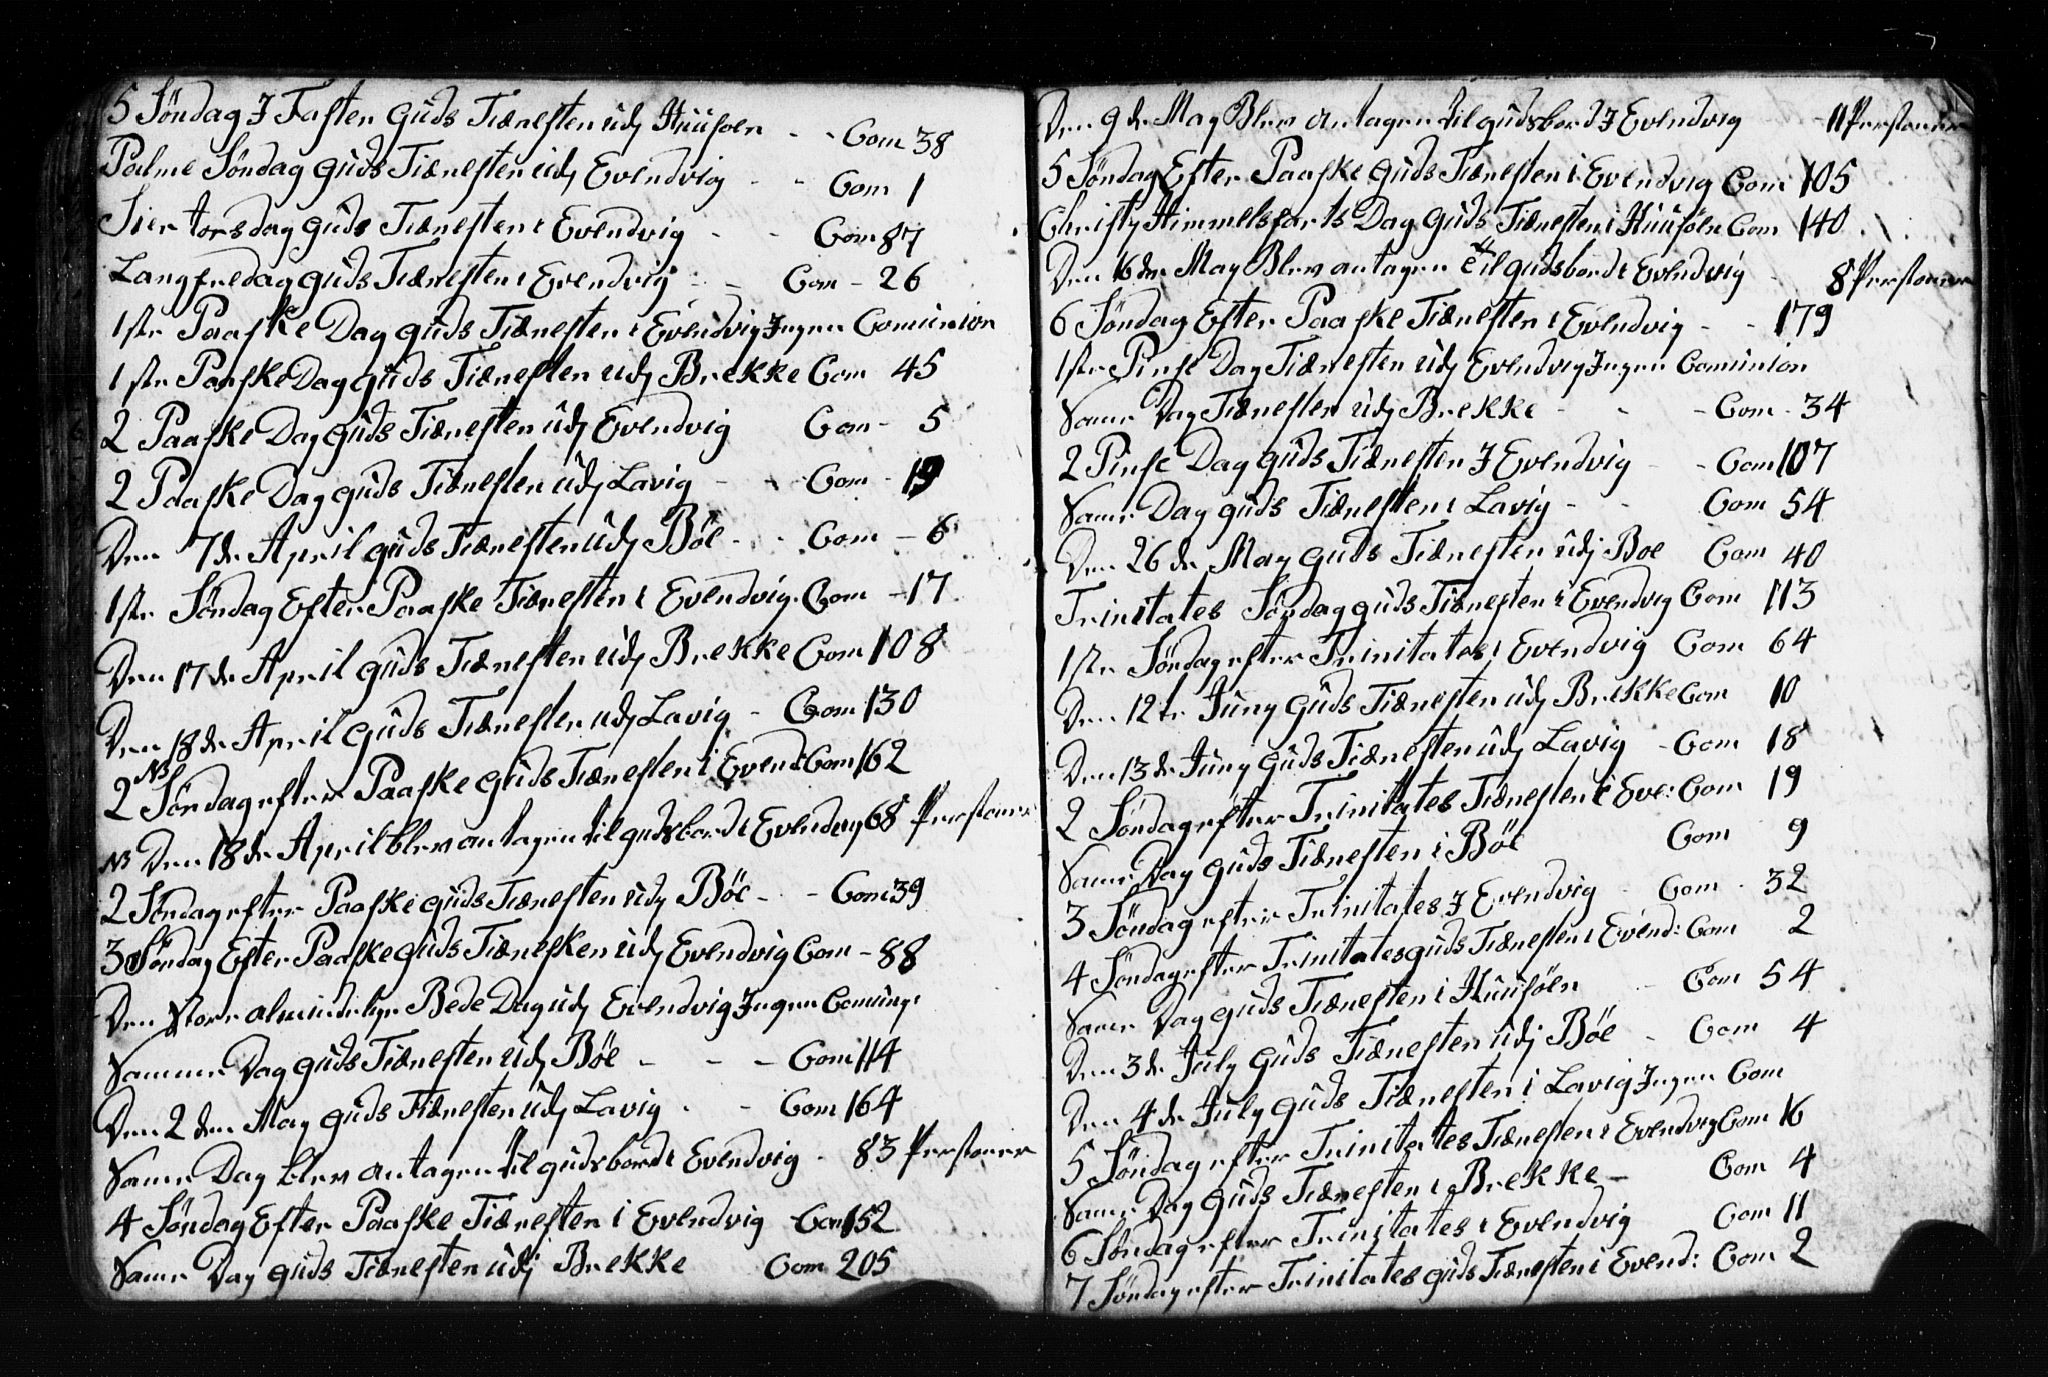 5 Søndag I Fasten Guds Tiænesten udj Huusøen - - Com 38
Palme Søndag Guds Tiænesten udj Evendvig - - Com 1
Skier torsdag Guds Tiænesten i Evendvig - - Com 87
Langfredag Guds Tiænesten i Evendvig - - Com - 26
1ste Paaske Dag Guds Tiænesten i Evendvig Ingen Comunion
1ste Paaske Dag Guds Tiænesten udj Brekke Com 45
2 Paaske Dag Guds Tiænesten udj Evendvig Com - 5
2 Paaske Dag Guds Tiænesten udj Lavig - - Com - 19
Den 7de April Guds Tiænesten udj Böe - - Com - 6
1ste Søndag Efter Paaske Tiænesten i Evendvig. Com - 17
Den 17de April Guds Tiænesten udj Brekke Com 108
Den 18de April Guds Tiænesten udj Lavig - Com 130
2 NB Søndag efter Paaske Guds Tiænesten i Evend: Com 162
NB Den 18de April blev antagen til gudsbord i Evendvig 68 Perstoner
2 Søndag efter Paaske Guds Tiænesten udj Böe - - Com 39
3 Søndag Efter Paaske Guds Tiænesken udj Evendvig Com - 88
Den Store almindelige Bede Dag udj Evendvig Ingen Comung:
Samme Dag Guds Tiænesten udj Böe - - - Com 114
Den 2den May Guds Tiænesten udj Lavig - - Com 164
Same Dag blev antagen til gudsbord i Evendvig - 83 Perstoner
4 Søndag Efter Paaske Tiænesten i Evendvig Com 152
Same Day Guds Tiænesten udj Brekke Com 205
Den 9de May Blev antagen til gudsbord I Evendvig - 11 Perstoner
5 Søndag Efter Paaske Guds Tiænesten i Evendvig Com 105
Christy Himmelsfarts Dag Guds Tiænesten i Huusöen Com 140
Den 16de May Blev antagen til gudsbord i Evendvig 8 Perstoner
6 Søndag Efter Paaske Tiænesten i Evendvig - - 179
1ste Pinse Dag Tiænesten udj Evendvig Ingen Comunion
Same Dag Tiænesten udj Brekke - - - Com - 34
2 Pinse Dag Guds Tiænesten I Evendvig - - Com 107
Same Dag Guds Tiænesten i Lavig - - Com 54
Den 26de May Guds Tiænesten udj Boe Com 40
Trinitates Søndag Guds Tiænesten i Evendvig Com 113
1ste Søndag efter Trinitates i Evendvig Com 64
Den 12te Juny Guds Tiænesten udj Brekke Com 10
Den 13de Juny Guds Tiænesten udj Lavig - Com 18
2 Søndag efter Trinitates Tiænesten i Eve: Com 19
Same Dag Guds Tiænesten i Böe Com 9
3 Søndag efter Trinitates I Evendvig - Com - 32
4 Søndag efter Trinitates Guds Tiænesten i Evend: Com 2
Same Dag Guds Tiænesten i Huusöen - Com 54
Den 3de July Guds Tiænesten udj Böe - Com 4
Den 4de July Guds Tiænesten i Lavig Ingen Com
5 Søndag efter Trinitates Tiænesten i Evendvig Com 16
Same Dag Guds Tiænesten i Brekke - Com 4
6 Søndag efter Trinitates i Evendvig Com 11
7 Søndag efter Trinitates Guds Tiænesten i Evend: Com 2